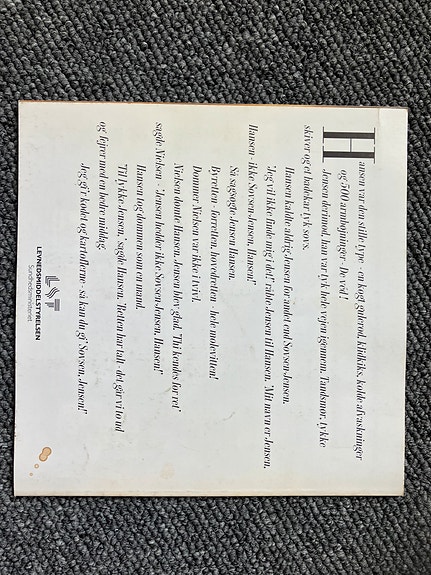 Hansen var den stille type - en kogt gulerod, klidkiks, kolde afvaskninger
og 500 armbøjninger - De véd!
Jensen derimod, han var tyk hele vejen igennem. Tandsmør, tykke
skiver og et badekar tyk sovs.
Hansen kaldte aldrig Jensen for andet end Sovsen-Jensen.
"Jeg vil ikke finde mig i det!" råbte Jensen til Hansen. "Mit navn er Jensen,
Hansen - ikke Sovsen-Jensen, Hansen!"
Så sagsøgte Jensen Hansen.
Byretten - forretten, hovedretten - hele molevitten!
Dommer Nielsen var ikke i tvivl.
Nielsen dømte Hansen. Jensen blev glad. "Thi kendes for ret"
sagde Nielsen - "Jensen hedder ikke Sovsen-Jensen, Hansen!"
Hansen tog dommen som en mand.
"Til lykke Jensen," sagde Hansen. "Retten har talt - det går vi to ud
og fejrer med en bedre middag.
Jeg gi'r kødet og kartoflerne - så kan du gi' Sovsen, Jensen!"
LST
LEVNEDSMIDDELSTYRELSEN
Sundhedsministeriet